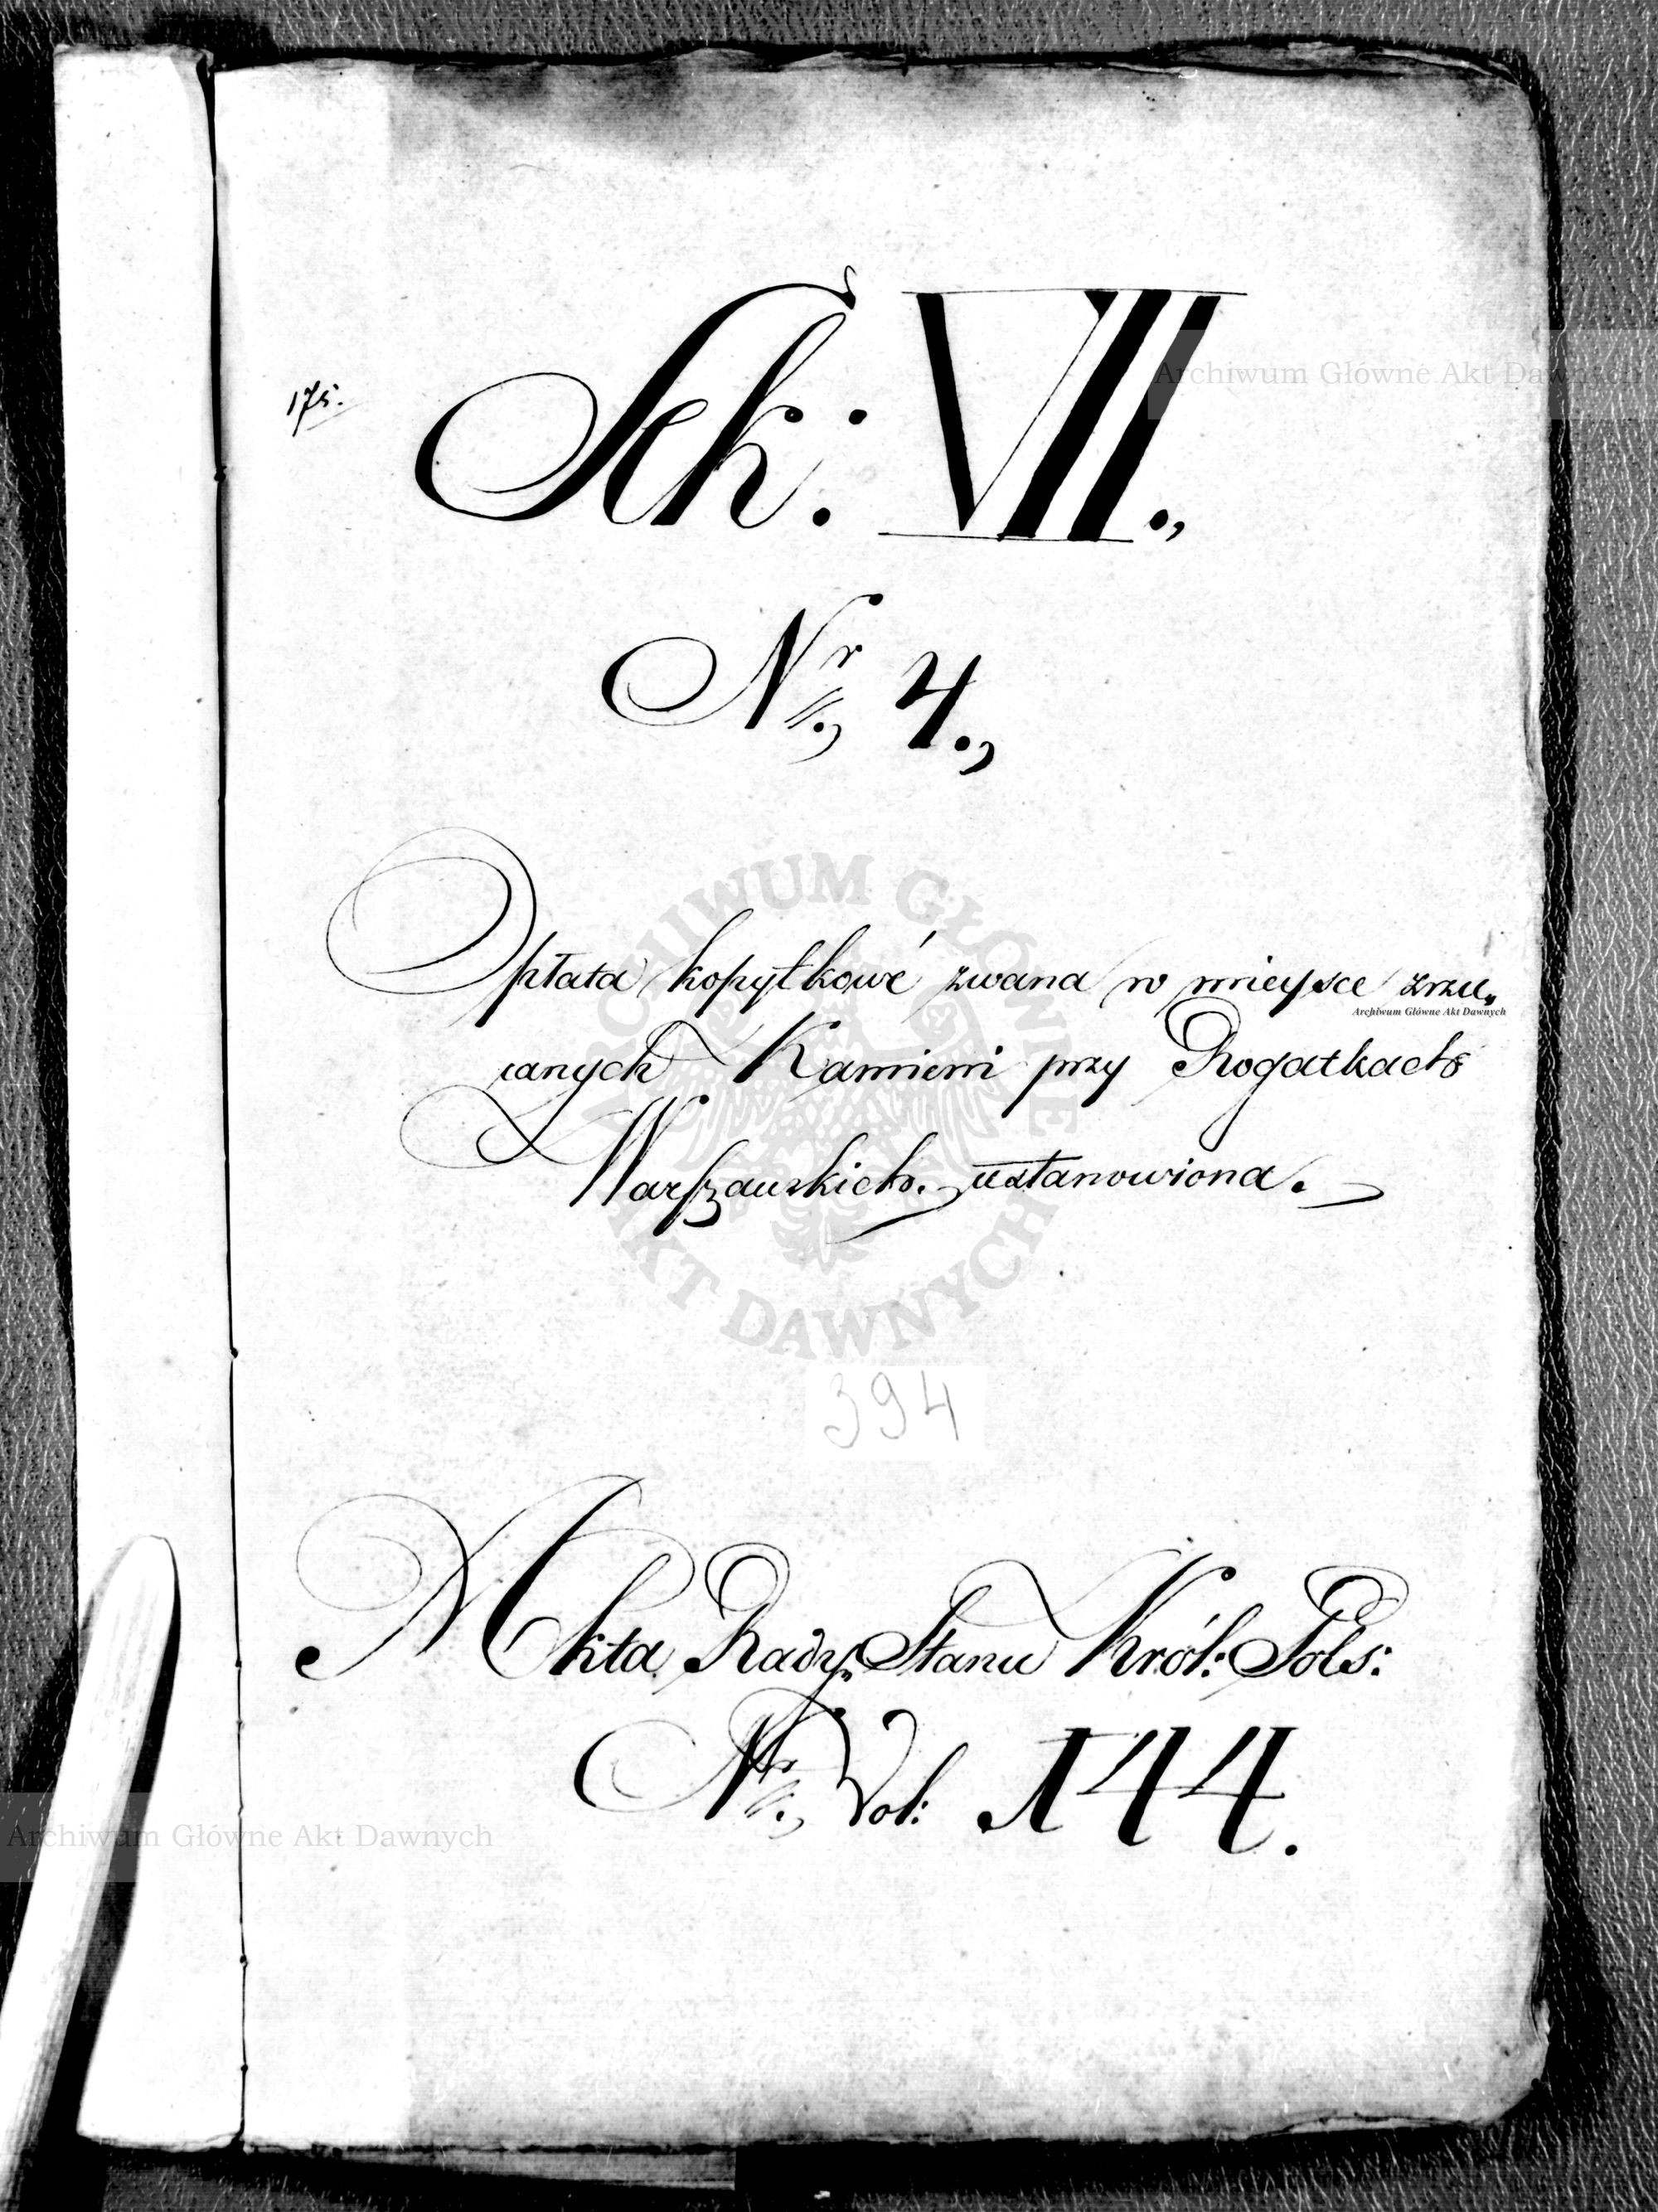 175.
Sek: VII.,
Nr., 4.,
Opłata kopytkowé zwana w mieysce zrzu„
canych Kamieni przy Rogatkach
Warszawskich. ustanowiona.
394
Akta Rady Stanu Król: Pols:
Nr., Vol: 144.
Archiwum Główne Akt Dawnych
Archiwum Główne Akt Dawnych
ARCHIWUM GŁÓWNE AKT DAWNYCH
Archiwum Główne Akt Dawnych